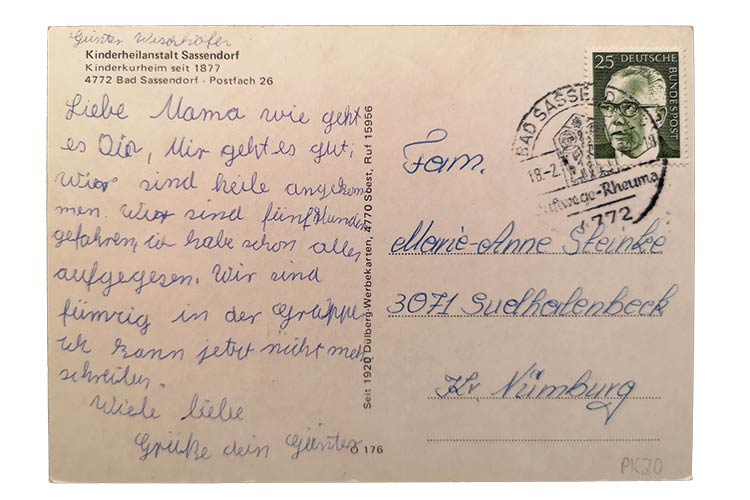 Günter
Kinderheilanstalt Sassendorf
Kinderkurheim seit 1877
4772 Bad Sassendorf - Postfach 26
Liebe Mama wie geht
es Dir, Mir geht es gut,
Wir sind heile angekom
men. Wir sind fünf Stunden
gefahren, ich habe schon alles
aufgegesen. Wir sind
fümzig in der Gruppe.
Ich kann jetzt nicht mehr
schreiben.
Viele liebe
Grüße dein Günter
Seit 1920 Dülberg-Werbekarten, 4770 Soest, Ruf 15956
O 176
25 DEUTSCHE BUNDESPOST
BAD SASSE
18.-2.
ftwege-Rheuma
4772
Fam.
Marie-Anne Steinke
3071 Sudhalenbeck
Kr Nümburg
PK20